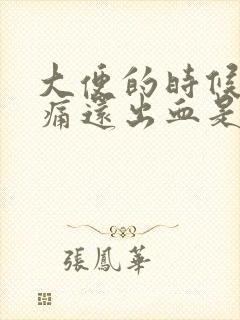 大便的時候
痛還出血是
張鳳華